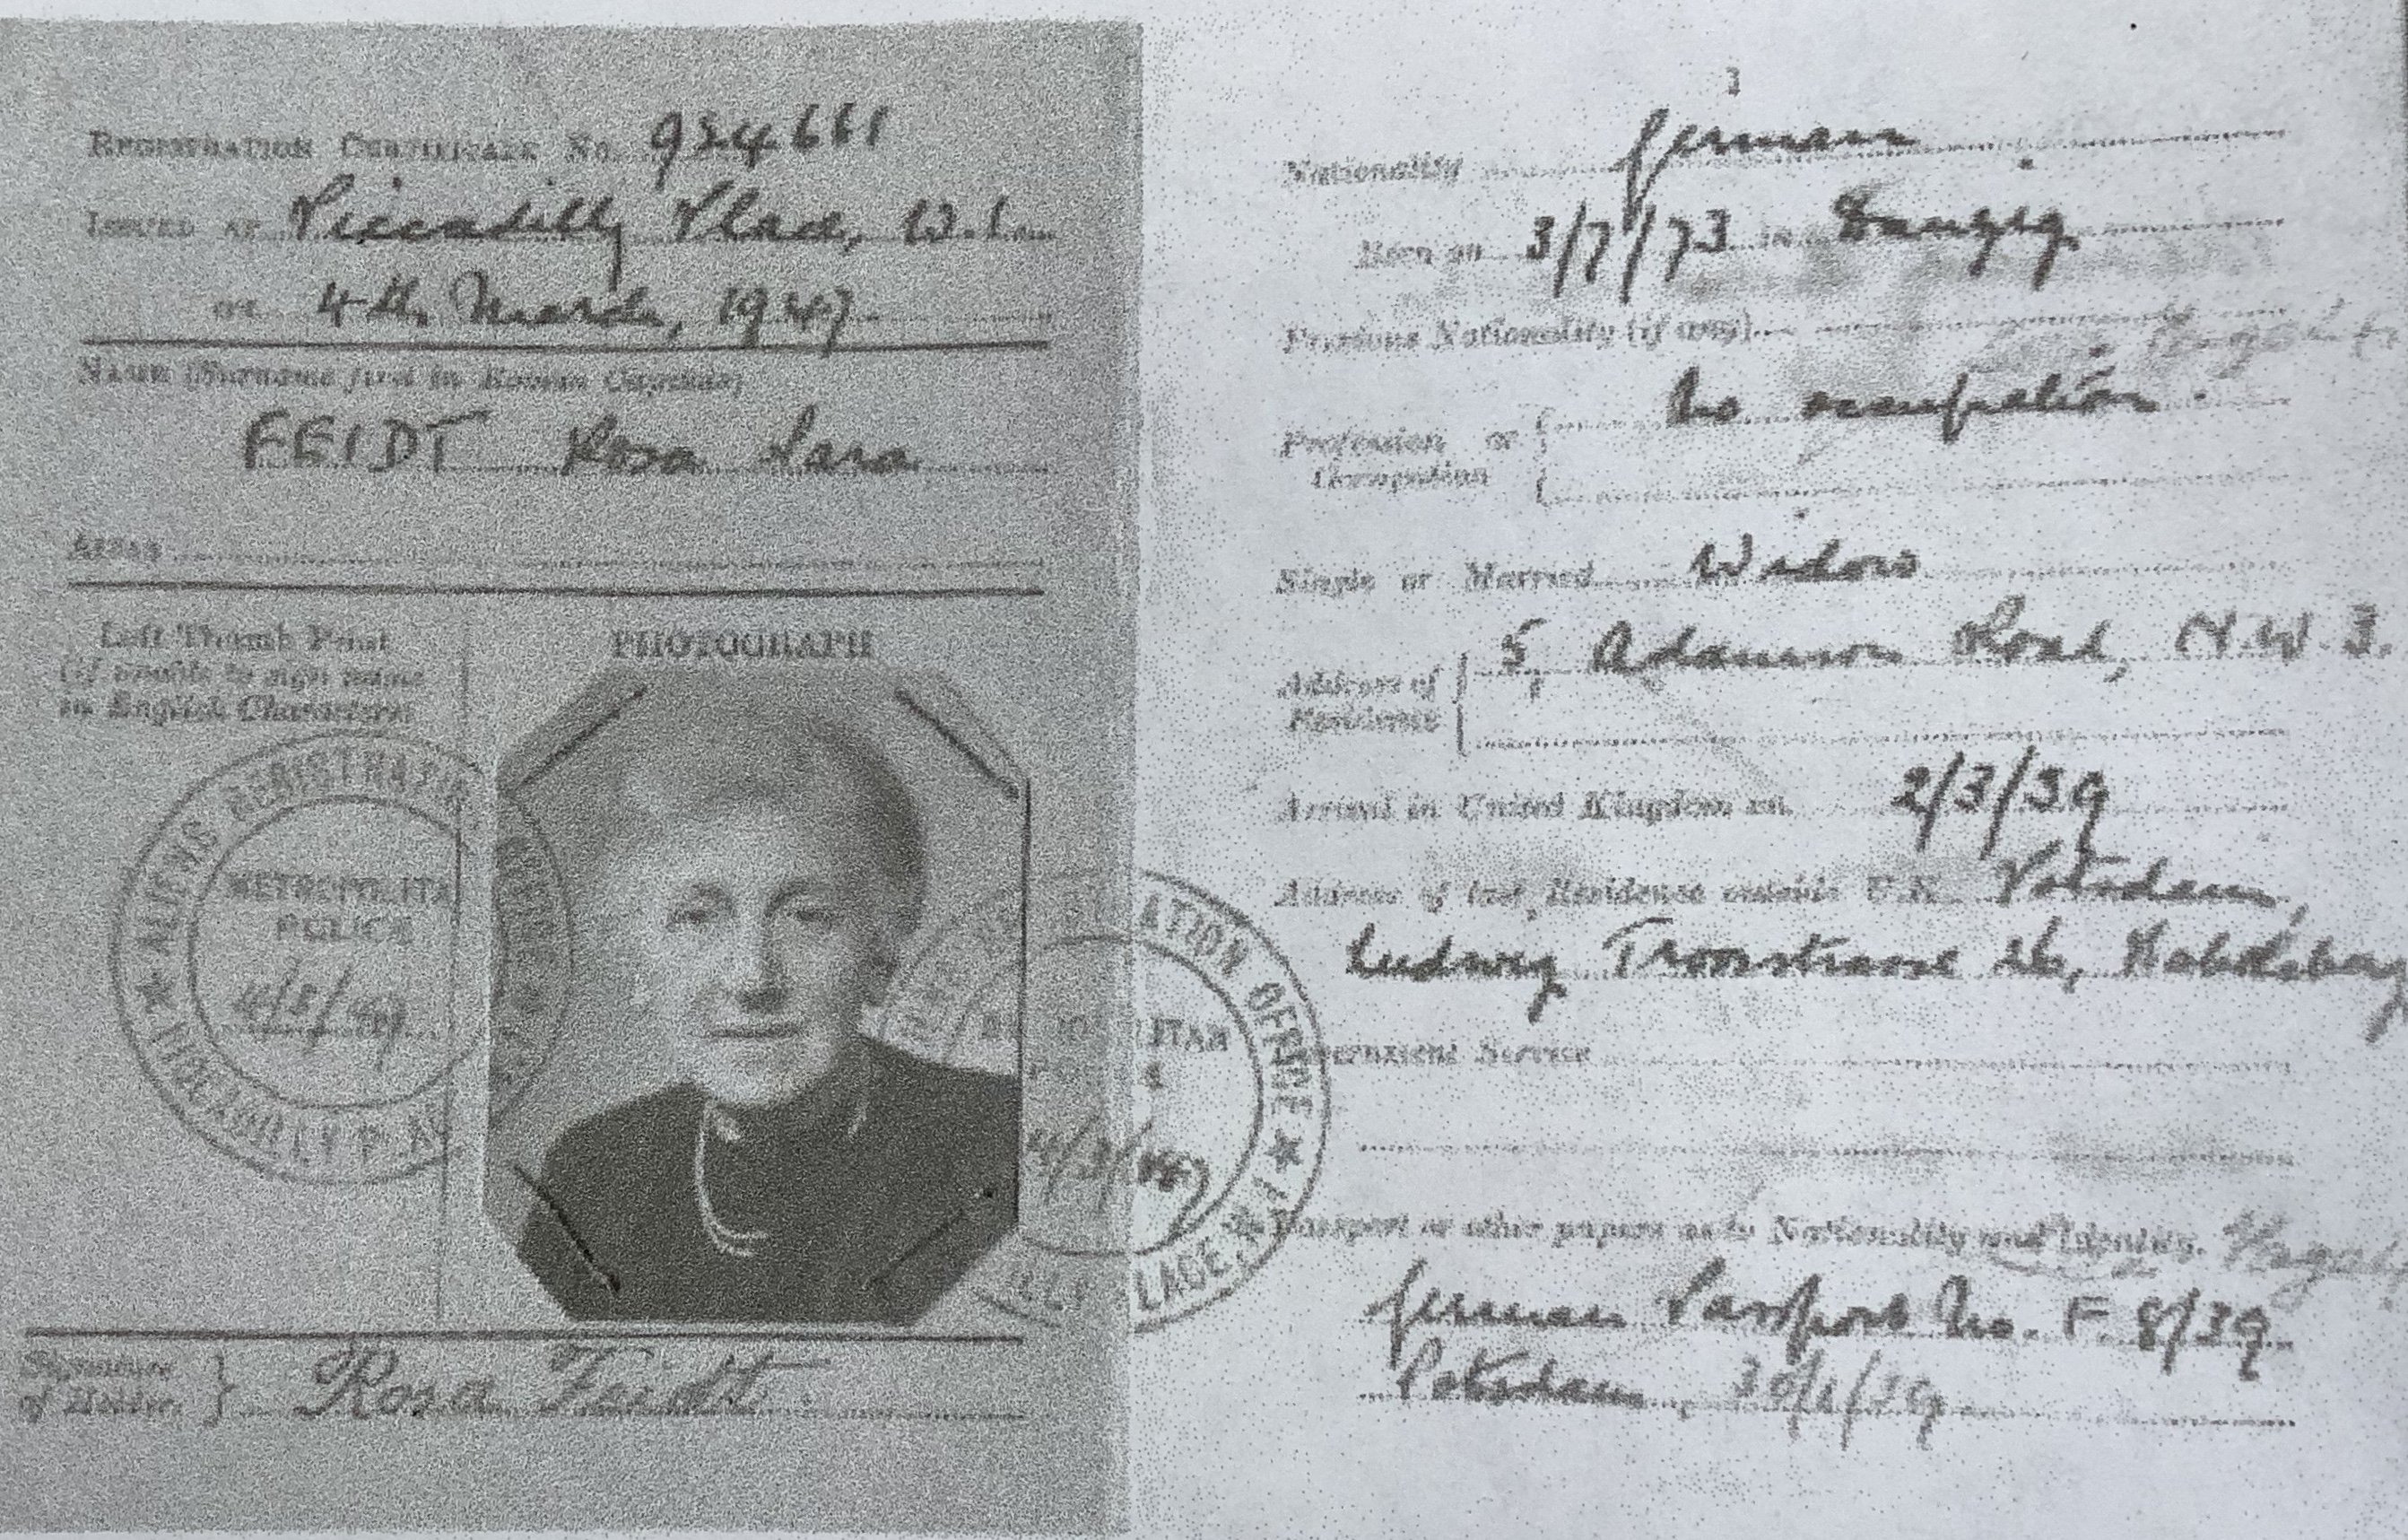 REGISTRATION CERTIFICATE No. 924661
ISSUED AT Piccadilly Place, W.1.
ON 4th March, 1947
NAME (Surname first in Roman Capitals)
FEIDT Rosa Sara
ALIAS
Left Thumb Print
(if unable to sign name
in English Characters)
PHOTOGRAPH
ALIENS REGISTRATION
METROPOLITAN
POLICE
PICCADILLY PLACE
Signature
of Holder
Rosa Feidt
1
Nationality German
Born on 3/7/73 in Danzig
Previous Nationality (if any)
Profession or
Occupation
No occupation.
Single or Married Widow
Address of
Residence
5, Adamson Road, N.W.3.
Arrival in United Kingdom on 2/3/39
Address of last Residence outside U.K. Potsdam,
Ludwig Trooststrasse
Government Service
ATION OFFICE
ITAN
4/3/47
LACE
Passport or other papers as to Nationality and Identity.
German Passport No. F 8/39
Potsdam, 30/1/39